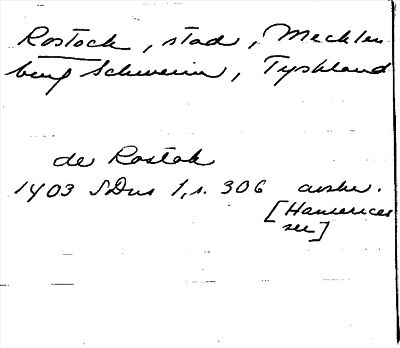 Rostock, stad, Mecklen
burg Schwerin, Tyskland
de Rostok
1403 SDns 1, s. 306 avskr.
[Hanserecesser]